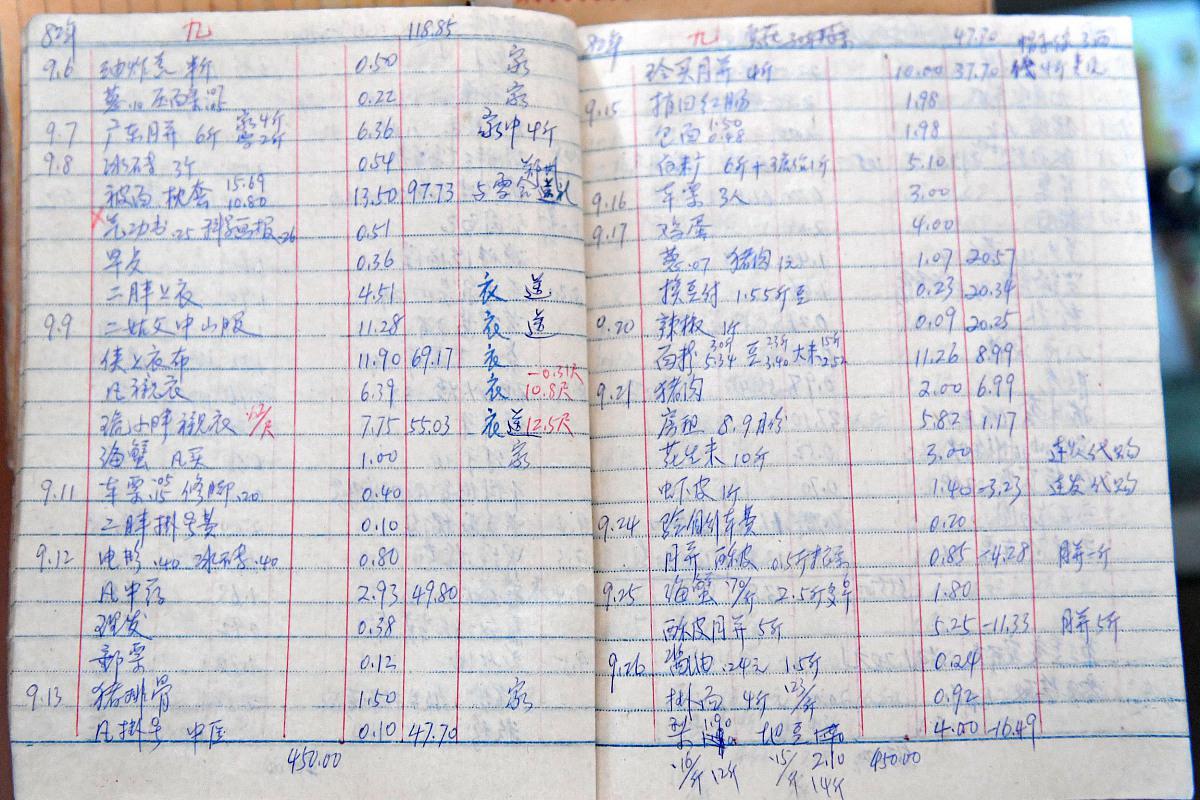 82年 九 118.85
9.6 油炸 半斤 0.50 家
0.22 家
9.7 广东月饼 6斤 家4斤 6.36 家中4斤
9.8 冰砖 3斤 0.54
被面 枕套 15.69 10.80 13.50 97.73 送礼
气功书 .25 科学画报 .26 0.51
早点 0.36
二胖上衣 4.51 衣 送
9.9 二姑父中山服 11.28 衣 送
上衣布 11.90 69.17 衣
凡衬衣 6.39 衣 -0.31尺 10.8尺
小胖衬衣 7.75 55.03 衣 送 12.5尺
海蟹 凡买 1.00 家
9.11 车票 .05 .15 修脚 .20 0.40
二胖掛号费 0.10
9.12 电影 .40 冰砖 .40 0.80
凡中药 2.93 49.80
理发 0.38
邮票 0.12
9.13 猪排骨 1.50 家
凡掛号 中医 0.10 47.70
450.00
82年 九 47.70
买月饼 4斤 10.00 37.70
9.15 红肠 1.98
1.50 1.98
6斤+ 1斤 5.10
9.16 车票 3人 3.00
9.17 鸡蛋 4.00
葱 .07 猪肉 1元 1.07 20.57
换豆付 1.55斤豆 0.23 20.34
9.20 辣椒 1斤 0.09 20.25
5.34 豆 3.40 大米 15斤 2.52 11.26 8.99
9.21 猪肉 2.00 6.99
房租 8.9月份 5.82 1.17
花生米 10斤 3.00 连发代购
虾皮 1斤 1.40 -3.23 连发代购
9.24 车费 0.20
月饼 酥皮 0.5斤 0.85 -4.28 月饼一斤
9.25 海蟹 .70/斤 2.5斤 1.80
酥皮月饼 5斤 5.25 -11.33 月饼5斤
9.26 酱油 .24元 1.5斤 0.24
掛面 4斤 .23/斤 0.92
梨 1.90 地豆 4.00 -16.49
.16/斤 12斤 .15/斤 2.10 14斤 450.00